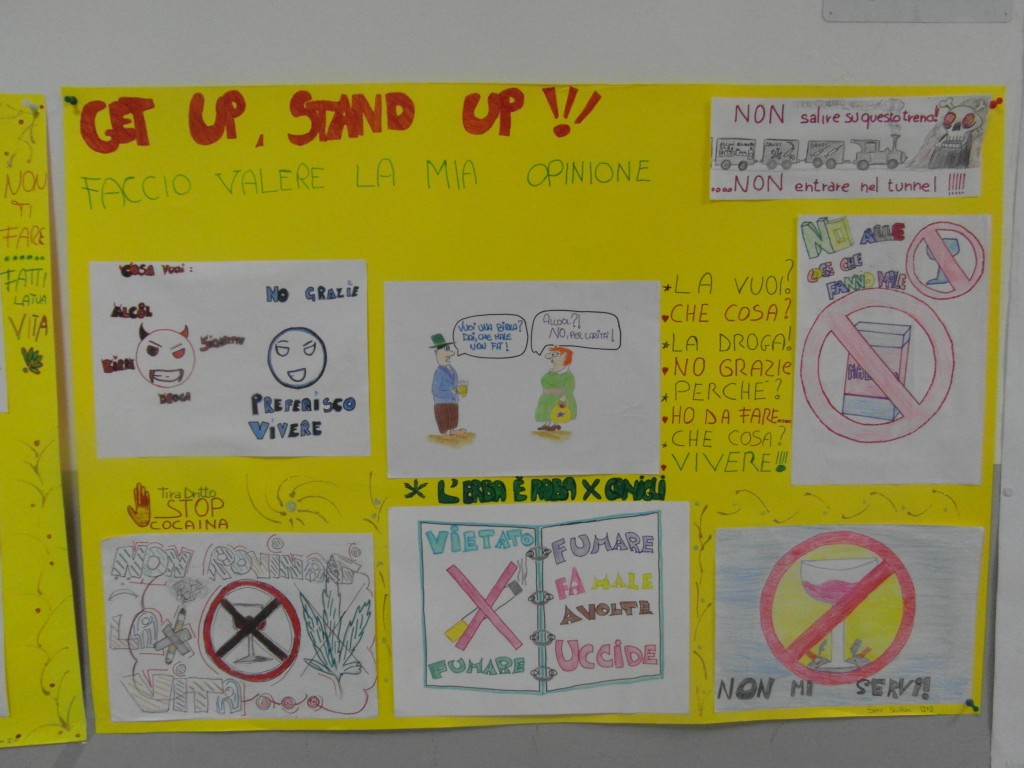 GET UP, STAND UP !!!
FACCIO VALERE LA MIA OPINIONE
NON salire su questo treno!
....NON entrare nel tunnel !!!!!
NON
TI
FARE
......
FATTI
LA TUA
VITA
COSA VUOI:
ALCOL
BIRRA
DROGA
NO GRAZIE
PREFERISCO
VIVERE
VUOI UNA BIRRA?
DAI, CHE MALE
NON FA!
ALCOOL?!
NO, PER CARITA'!
*LA VUOI?
CHE COSA?
*LA DROGA!
NO GRAZIE
*PERCHE'?
HO DA FARE....
*CHE COSA?
VIVERE!!!
NO ALLE
COSE CHE
FANNO MALE
Tira Dritto
STOP
COCAINA
* L'ERBA È ROBA X CONIGLI
NON ROVINARTI
LA
VITA
VIETATO
FUMARE
FUMARE
FA MALE
A VOLTE
UCCIDE
NON MI SERVI!